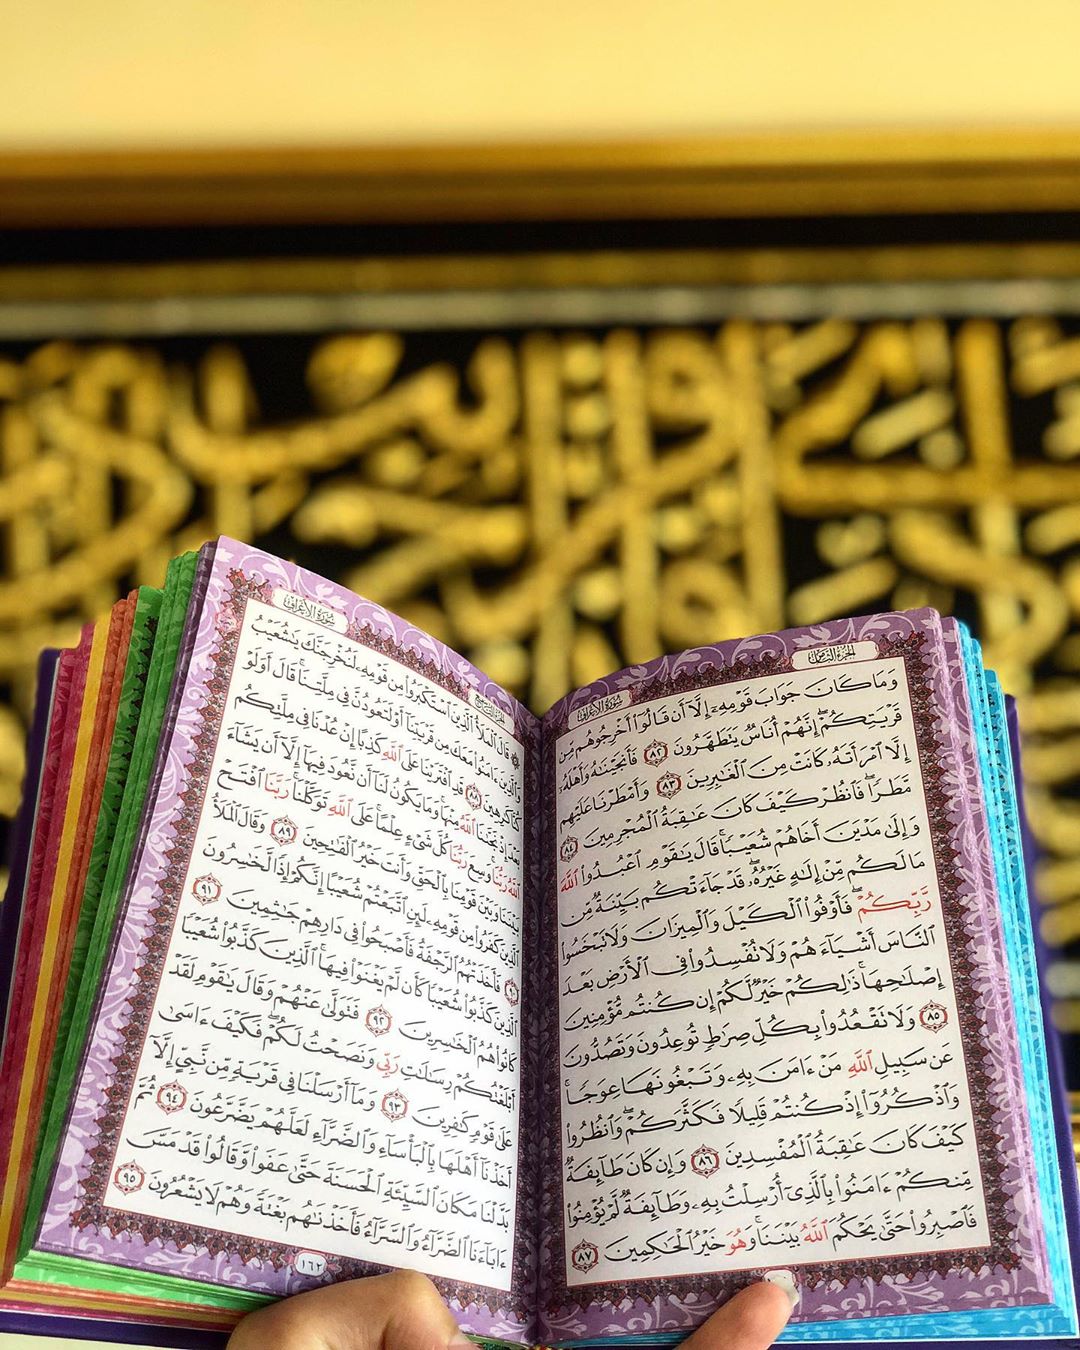 الجزء الثامن
سورة الأعراف
وَمَا كَانَ جَوَابَ قَوْمِهِۦٓ إِلَّآ أَن قَالُوٓا۟ أَخْرِجُوهُم مِّن
قَرْيَتِكُمْ ۖ إِنَّهُمْ أُنَاسٌ يَتَطَهَّرُونَ ٨٢ فَأَنجَيْنَـٰهُ وَأَهْلَهُۥٓ
إِلَّا ٱمْرَأَتَهُۥ كَانَتْ مِنَ ٱلْغَـٰبِرِينَ ٨٣ وَأَمْطَرْنَا عَلَيْهِم
مَّطَرًا ۖ فَٱنظُرْ كَيْفَ كَانَ عَـٰقِبَةُ ٱلْمُجْرِمِينَ ٨٤
وَإِلَىٰ مَدْيَنَ أَخَاهُمْ شُعَيْبًا ۗ قَالَ يَـٰقَوْمِ ٱعْبُدُوا۟ ٱللَّهَ
مَا لَكُم مِّنْ إِلَـٰهٍ غَيْرُهُۥ ۖ قَدْ جَآءَتْكُم بَيِّنَةٌ مِّن
رَّبِّكُمْ ۖ فَأَوْفُوا۟ ٱلْكَيْلَ وَٱلْمِيزَانَ وَلَا تَبْخَسُوا۟
ٱلنَّاسَ أَشْيَآءَهُمْ وَلَا تُفْسِدُوا۟ فِى ٱلْأَرْضِ بَعْدَ
إِصْلَـٰحِهَا ۚ ذَٰلِكُمْ خَيْرٌ لَّكُمْ إِن كُنتُم مُّؤْمِنِينَ
٨٥ وَلَا تَقْعُدُوا۟ بِكُلِّ صِرَٰطٍ تُوعِدُونَ وَتَصُدُّونَ
عَن سَبِيلِ ٱللَّهِ مَنْ ءَامَنَ بِهِۦ وَتَبْغُونَهَا عِوَجًا ۚ
وَٱذْكُرُوٓا۟ إِذْ كُنتُمْ قَلِيلًا فَكَثَّرَكُمْ ۖ وَٱنظُرُوا۟
كَيْفَ كَانَ عَـٰقِبَةُ ٱلْمُفْسِدِينَ ٨٦ وَإِن كَانَ طَآئِفَةٌ
مِّنكُمْ ءَامَنُوا۟ بِٱلَّذِىٓ أُرْسِلْتُ بِهِۦ وَطَآئِفَةٌ لَّمْ يُؤْمِنُوا۟
فَٱصْبِرُوا۟ حَتَّىٰ يَحْكُمَ ٱللَّهُ بَيْنَنَا ۚ وَهُوَ خَيْرُ ٱلْحَـٰكِمِينَ ٨٧
سورة الأعراف
قَالَ ٱلْمَلَأُ ٱلَّذِينَ ٱسْتَكْبَرُوا۟ مِن قَوْمِهِۦ لَنُخْرِجَنَّكَ يَـٰشُعَيْبُ
وَٱلَّذِينَ ءَامَنُوا۟ مَعَكَ مِن قَرْيَتِنَآ أَوْ لَتَعُودُنَّ فِى مِلَّتِنَا ۚ قَالَ أَوَلَوْ
كُنَّا كَـٰرِهِينَ ٨٨ قَدِ ٱفْتَرَيْنَا عَلَى ٱللَّهِ كَذِبًا إِنْ عُدْنَا فِى مِلَّتِكُم
بَعْدَ إِذْ نَجَّىٰنَا ٱللَّهُ مِنْهَا ۚ وَمَا يَكُونُ لَنَآ أَن نَّعُودَ فِيهَآ إِلَّآ أَن يَشَآءَ
ٱللَّهُ رَبُّنَا ۚ وَسِعَ رَبُّنَا كُلَّ شَىْءٍ عِلْمًا ۚ عَلَى ٱللَّهِ تَوَكَّلْنَا ۚ رَبَّنَا ٱفْتَحْ
بَيْنَنَا وَبَيْنَ قَوْمِنَا بِٱلْحَقِّ وَأَنتَ خَيْرُ ٱلْفَـٰتِحِينَ ٨٩ وَقَالَ ٱلْمَلَأُ
ٱلَّذِينَ كَفَرُوا۟ مِن قَوْمِهِۦ لَئِنِ ٱتَّبَعْتُمْ شُعَيْبًا إِنَّكُمْ إِذًا لَّخَـٰسِرُونَ
٩٠ فَأَخَذَتْهُمُ ٱلرَّجْفَةُ فَأَصْبَحُوا۟ فِى دَارِهِمْ جَـٰثِمِينَ ٩١
ٱلَّذِينَ كَذَّبُوا۟ شُعَيْبًا كَأَن لَّمْ يَغْنَوْا۟ فِيهَا ۚ ٱلَّذِينَ كَذَّبُوا۟ شُعَيْبًا
كَانُوا۟ هُمُ ٱلْخَـٰسِرِينَ ٩٢ فَتَوَلَّىٰ عَنْهُمْ وَقَالَ يَـٰقَوْمِ لَقَدْ
أَبْلَغْتُكُمْ رِسَـٰلَـٰتِ رَبِّى وَنَصَحْتُ لَكُمْ ۖ فَكَيْفَ ءَاسَىٰ
عَلَىٰ قَوْمٍ كَـٰفِرِينَ ٩٣ وَمَآ أَرْسَلْنَا فِى قَرْيَةٍ مِّن نَّبِىٍّ إِلَّآ
أَخَذْنَآ أَهْلَهَا بِٱلْبَأْسَآءِ وَٱلضَّرَّآءِ لَعَلَّهُمْ يَضَّرَّعُونَ ٩٤ ثُمَّ
بَدَّلْنَا مَكَانَ ٱلسَّيِّئَةِ ٱلْحَسَنَةَ حَتَّىٰ عَفَوا۟ وَّقَالُوا۟ قَدْ مَسَّ
ءَابَآءَنَا ٱلضَّرَّآءُ وَٱلسَّرَّآءُ فَأَخَذْنَـٰهُم بَغْتَةً وَهُمْ لَا يَشْعُرُونَ ٩٥
١٦٢